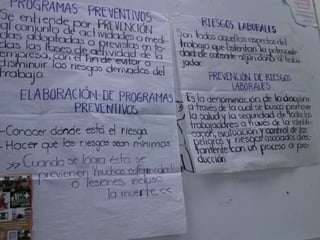 PROGRAMAS PREVENTIVOS
Se entiende por PREVENCIÓN
al conjunto de actividades o medi-
das adoptadas o previstas en to-
das las fases de actividad de la
empresa, con el fin de evitar o
disminuir los riesgos derivados del
trabajo.
ELABORACIÓN DE PROGRAMAS
PREVENTIVOS:
-Conocer dónde está el riesgo
-Hacer que los riesgos sean mínimos
>>Cuando se logra ésto se
previenen muchas enfermedades
o lesiones incluso
la muerte.<<
RIESGOS LABORALES
Son todos aquellos aspectos del
trabajo que ostentan la potenciali-
dad de causarle algún daño al traba-
jador.
PREVENCIÓN DE RIESGOS
LABORALES
Es la denominación de la disciplina
a través de la cual se busca promover
la salud y la seguridad de todos los
trabajadores a través de la identifi-
cación, evaluación y control de los
peligros y riesgos asociados direc-
tamente con un proceso de pro-
ducción